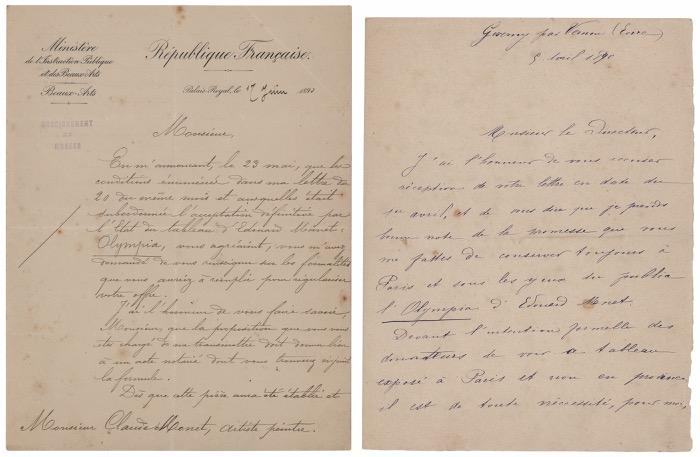 Ministère
de l'Instruction Publique
et des Beaux-Arts
Beaux-Arts
ENSEIGNEMENT
ET
MUSÉES
République Française.
Palais-Royal, le 17 Juin 1890
Monsieur,
En m'annonçant, le 23 mai, que les
conditions énumérées dans ma lettre du
20 du même mois et auxquelles était
subordonnée l'acceptation définitive par
l'Etat du tableau d'Edouard Manet:
Olympia, vous agréaient, vous m'avez
demandé de vous renseigner sur les formalités
que vous auriez à remplir pour régulariser
votre offre.
J'ai l'honneur de vous faire savoir,
Monsieur, que la proposition que vous vous
êtes chargé de me transmettre doit donner lieu
à un acte notarié dont vous trouverez ci-joint
la formule.
Dès que cette pièce aura été établie et
Monsieur Claude Monet, artiste peintre.
Giverny par Vernon (Eure)
9 avril 1890
Monsieur le Directeur,
J'ai l'honneur de vous accuser
réception de votre lettre en date du
avril, et de vous dire que je prends
bonne note de la promesse que vous
me faites de conserver toujours à
Paris et sous les yeux du public
l'Olympia d'Edouard Manet.
Devant l'intention formelle des
donateurs de voir ce tableau
exposé à Paris et non en province
il est de toute nécessité, pour moi,